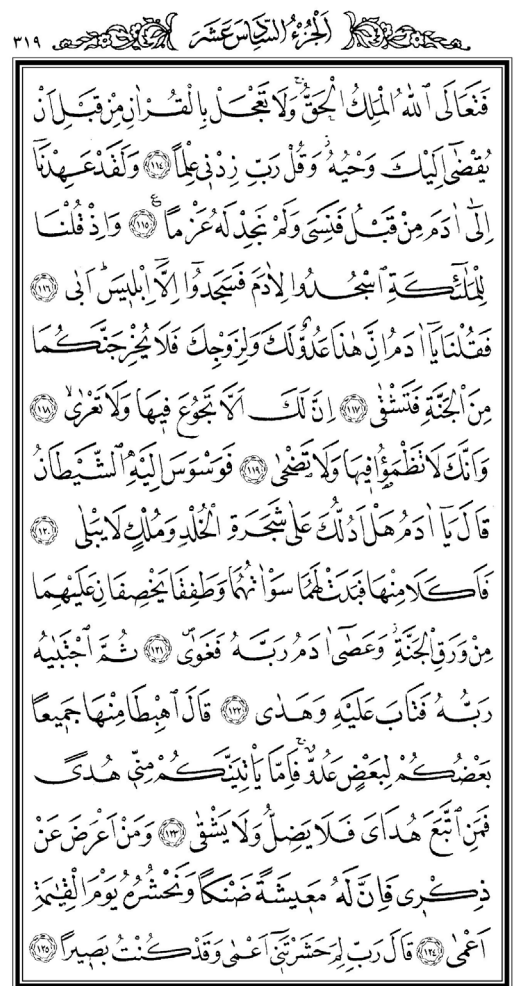 الجزء السادس عشر ٣١٩
فَتَعَالَى ٱللّٰهُ الْمَلِكُ الْحَقُّۚ وَلَا تَعْجَلْ بِالْقُرْاٰنِ مِنْ قَبْلِ اَنْ
يُقْضٰٓى اِلَيْكَ وَحْيُهُۘ وَقُلْ رَبِّ زِدْنٖى عِلْمًا ﴿١١٤﴾ وَلَقَدْ عَهِدْنَٓا
اِلٰٓى اٰدَمَ مِنْ قَبْلُ فَنَسِىَ وَلَمْ نَجِدْ لَهُ عَزْمًا ࣖ ﴿١١٥﴾ وَاِذْ قُلْنَا
لِلْمَلٰٓئِكَةِ ٱسْجُدُوا لِاٰدَمَ فَسَجَدُٓوا اِلَّٓا اِبْلٖيسَۜ اَبٰى ﴿١١٦﴾
فَقُلْنَا يَٓا اٰدَمُ اِنَّ هٰذَا عَدُوٌّ لَكَ وَلِزَوْجِكَ فَلَا يُخْرِجَنَّكُمَا
مِنَ الْجَنَّةِ فَتَشْقٰى ﴿١١٧﴾ اِنَّ لَكَ اَلَّا تَجُوعَ فٖيهَا وَلَا تَعْرٰىۙ ﴿١١٨﴾
وَاَنَّكَ لَا تَظْمَؤُ۬ا فٖيهَا وَلَا تَضْحٰى ﴿١١٩﴾ فَوَسْوَسَ اِلَيْهِ ٱلشَّيْطَانُ
قَالَ يَٓا اٰدَمُ هَلْ اَدُلُّكَ عَلٰى شَجَرَةِ الْخُلْدِ وَمُلْكٍ لَا يَبْلٰى ﴿١٢٠﴾
فَاَكَلَا مِنْهَا فَبَدَتْ لَهُمَا سَوْاٰتُهُمَا وَطَفِقَا يَخْصِفَانِ عَلَيْهِمَا
مِنْ وَرَقِ الْجَنَّةِۘ وَعَصٰٓى اٰدَمُ رَبَّهُ فَغَوٰىۖ ﴿١٢١﴾ ثُمَّ ٱجْتَبٰيهُ
رَبُّهُ فَتَابَ عَلَيْهِ وَهَدٰى ﴿١٢٢﴾ قَالَ ٱهْبِطَا مِنْهَا جَمٖيعًا
بَعْضُكُمْ لِبَعْضٍ عَدُوٌّۚ فَاِمَّا يَاْتِيَنَّكُمْ مِنّٖى هُدًى
فَمَنِ ٱتَّبَعَ هُدَاىَ فَلَا يَضِلُّ وَلَا يَشْقٰى ﴿١٢٣﴾ وَمَنْ اَعْرَضَ عَنْ
ذِكْرٖى فَاِنَّ لَهُ مَعٖيشَةً ضَنْكًا وَنَحْشُرُهُ يَوْمَ الْقِيٰمَةِ
اَعْمٰى ﴿١٢٤﴾ قَالَ رَبِّ لِمَ حَشَرْتَنٖٓى اَعْمٰى وَقَدْ كُنْتُ بَصٖيرًا ﴿١٢٥﴾